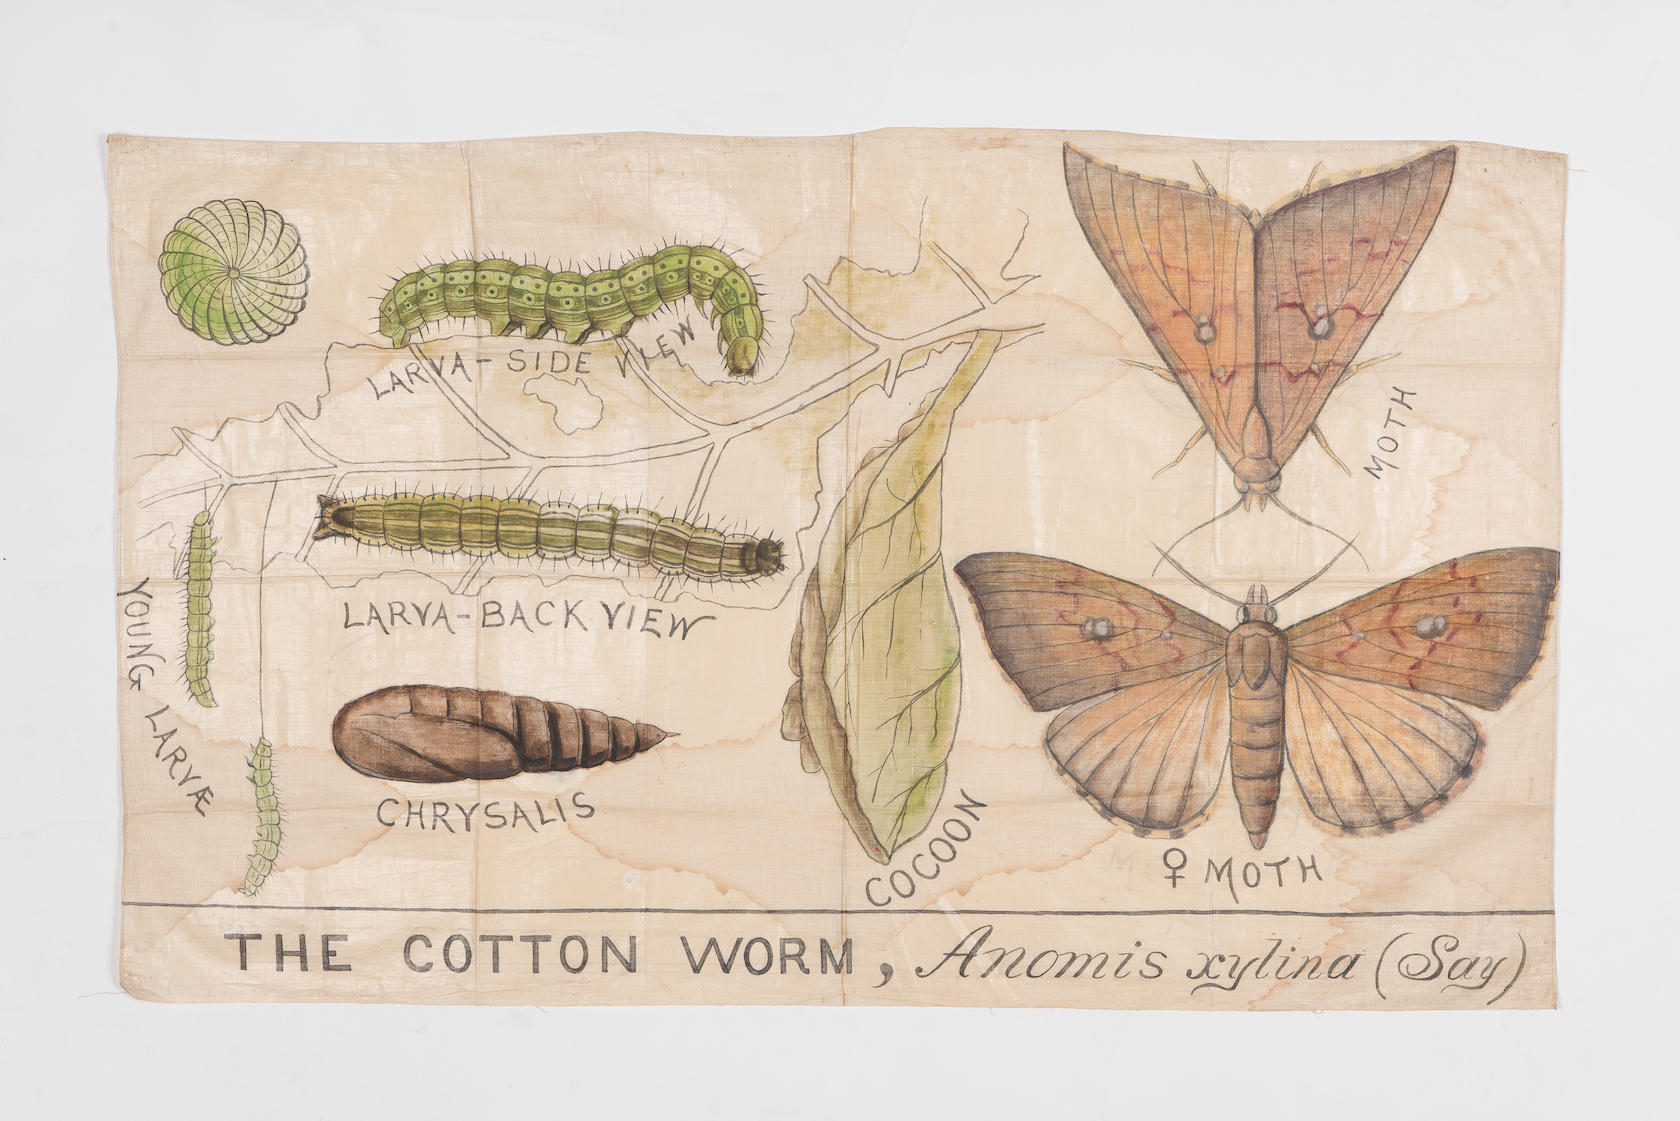 LARVA-SIDE VIEW
MOTH
LARVA-BACK VIEW
YOUNG LARVÆ
CHRYSALIS
COCOON
♀ MOTH
THE COTTON WORM, Anomis xylina (Say)